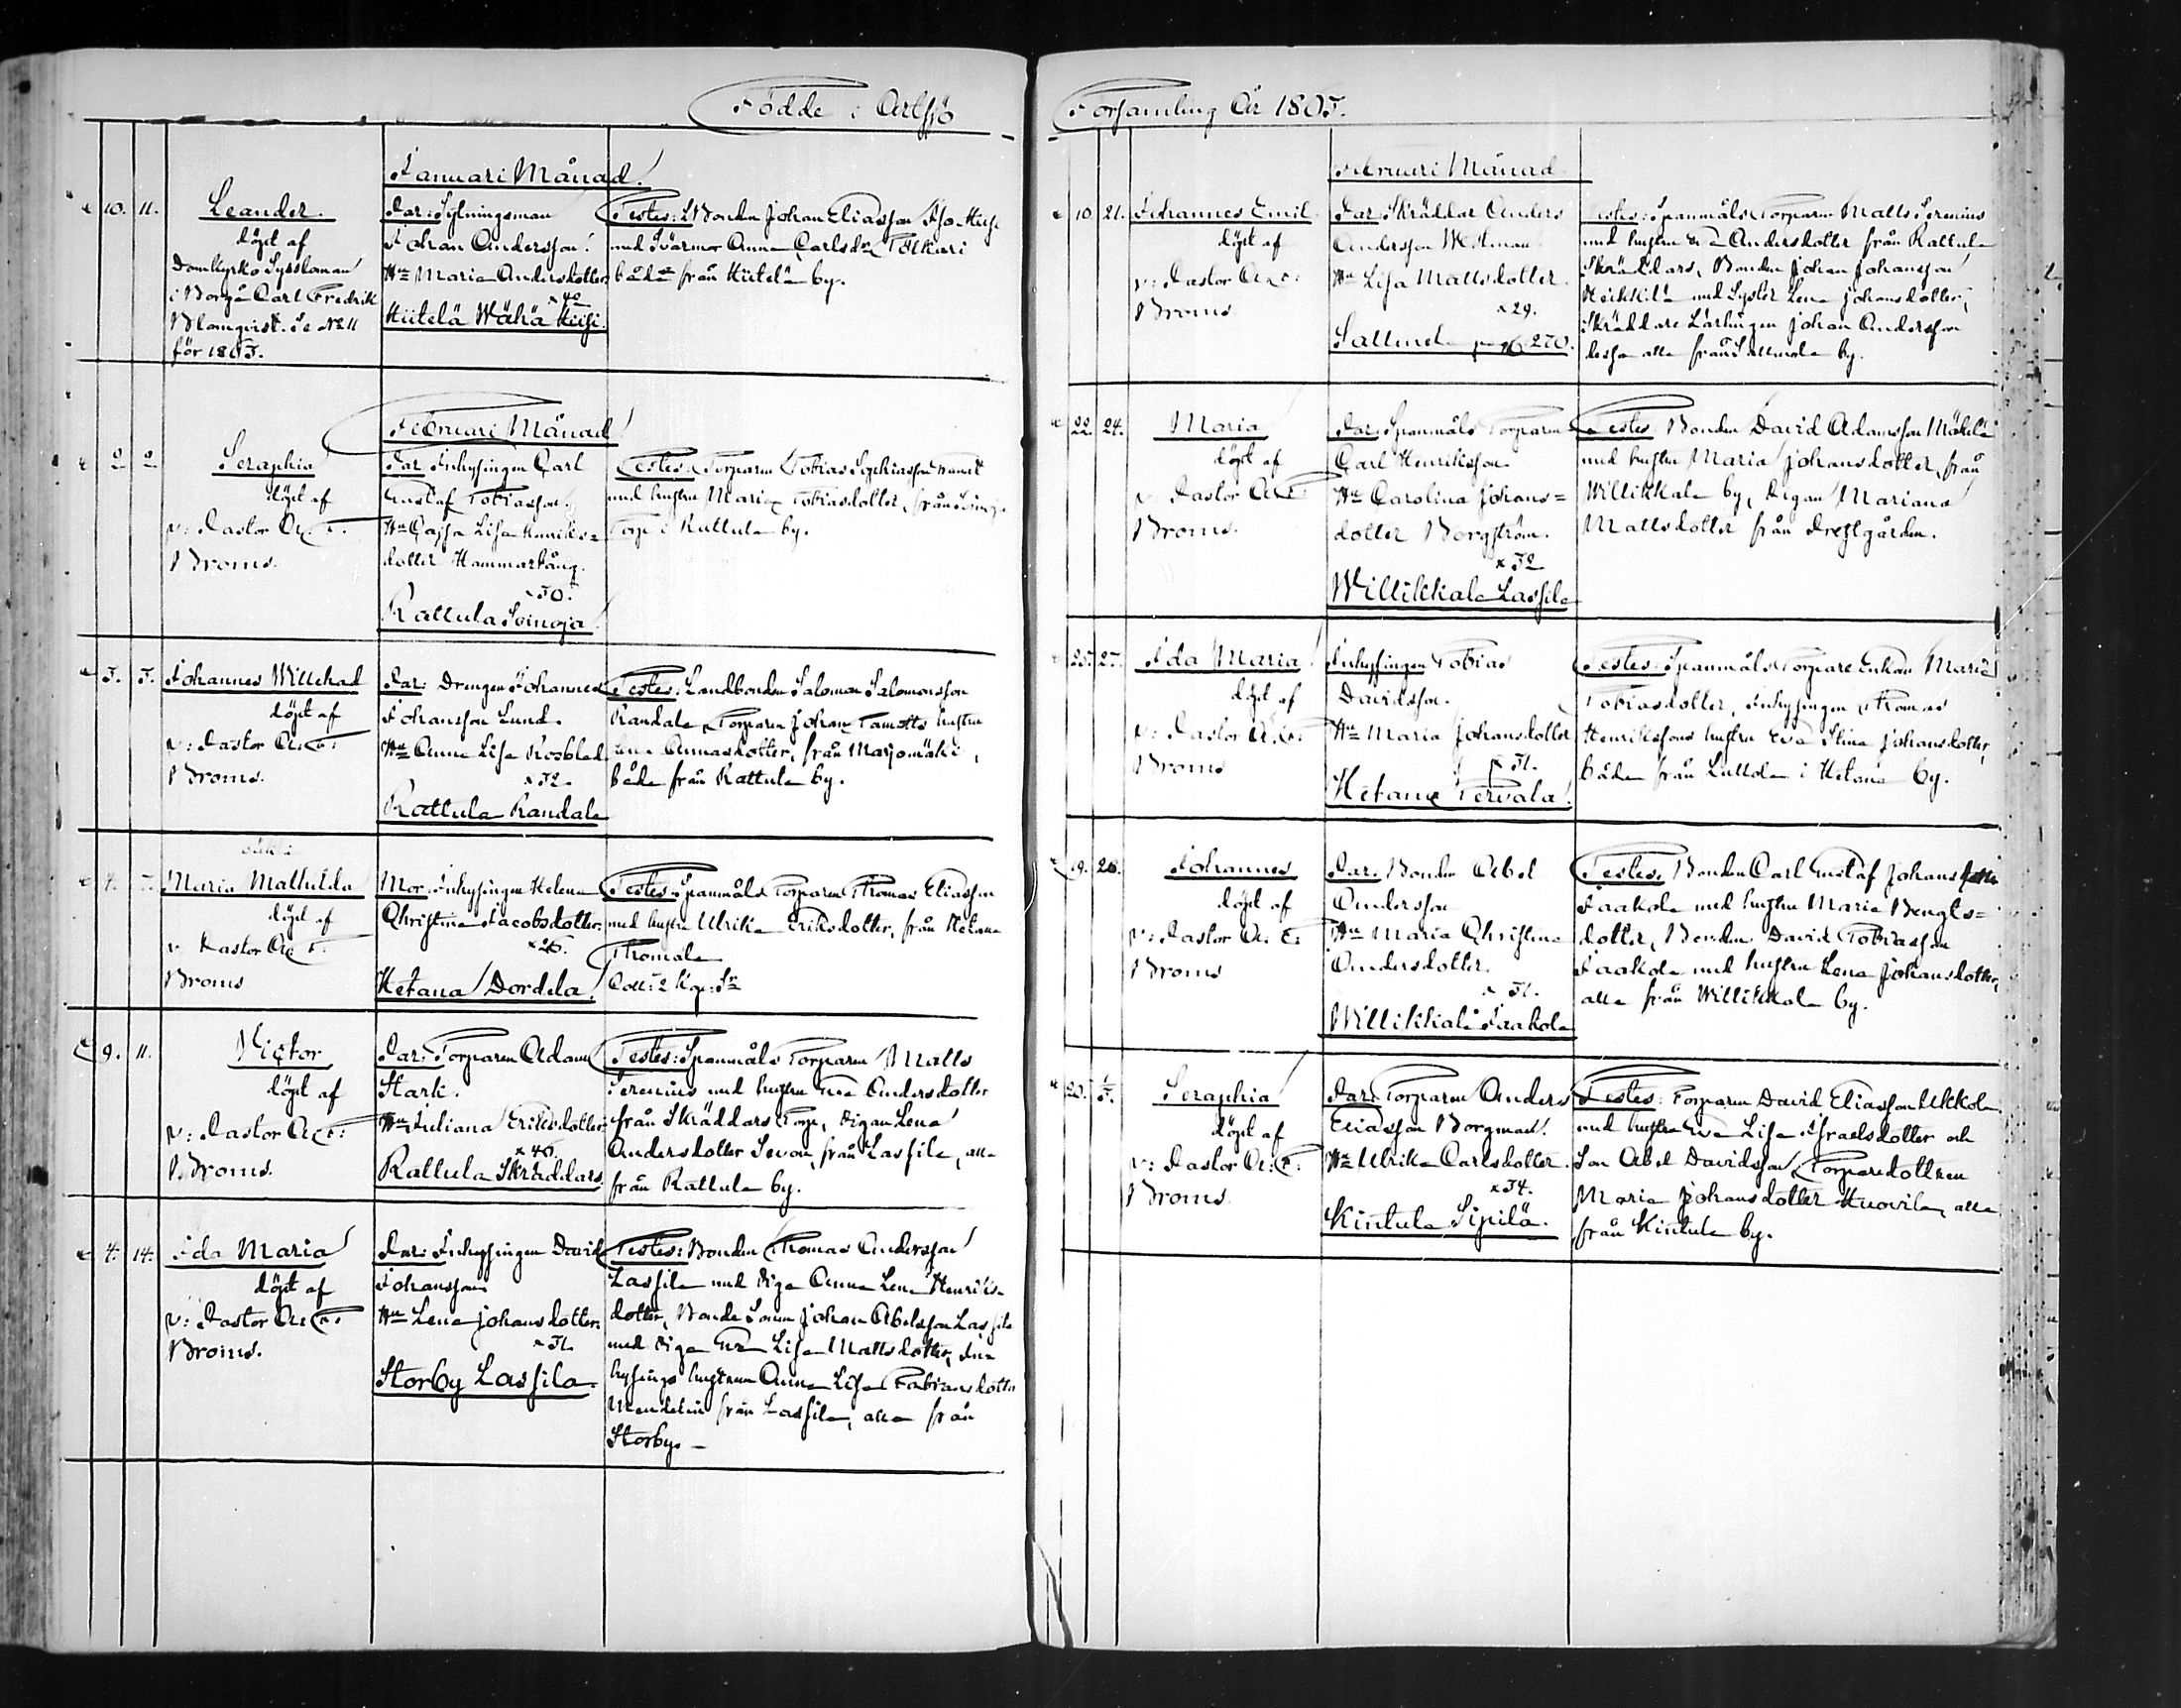 Födde i Artsjö
Januari Månad.
10. 11.
Leander.
döpt af
Domkyrko Syssloman
i Borgå Carl Fredrik
Blomqvist. Se No 11
för 1865.
Far: Sytningsman
Johan Andersson.
Hu Maria Andersdotter
Hiitelä Wähä
Testes: Bonden Johan Eliasson Iso
med Svärmor Anna Carlsdr
både från Hiitelä by.
Februari Månad
2 2
Seraphia
döpt af
v: Pastor A. F.
Broms.
Far Inhysingen Carl
Gustaf Tobiasson.
Hu Cajsa Lisa Henriks=
dotter Hammartång.
Rattula Svinoja
Testes: Torparen Tobias
med hustru Maria Tobiasdotter, från
Torp i Rattula by.
5. 5.
Johannes Willehad
döpt af
v: Pastor A. F.
Broms.
Far: Drengen Johannes
Johansson Lund.
Hu Anna Lisa Rosblad
x 32.
Rattula Randala
Testes: Landbonden Salomon Salomonsson
Randala, Torparen Johan hustru
Lena Annasdotter, från Marjomäki,
både från Rattula by.
4.
Maria Mathilda
döpt af
v Pastor A F.
Broms
Mor: Inhysingen Helena
Christina Jacobsdotter.
x 26.
Hetana Dordela.
Testes: Spanmåls Torparen Thomas Eliasson
med hustru Ulrika Eriksdotter, från Hetana
Thomäla
9. 11.
Victor
döpt af
v: Pastor A F:
Broms.
Far: Torparen Adam
Stark.
Hu Juliana Eriksdotter
x 40.
Rattula Skräddars
Testes: Spanmåls Torparen Matts
Serenius med hustru Eva Andersdotter
från Skräddars Torp, Pigan Lena
Andersdotter från Lassila, alla
från Rattula by.
4. 14.
Ida Maria
döpt af
v: Pastor A. F.
Broms.
Far: Inhysingen David
Johansson
Hu Lena Johansdotter.
x 31.
Storby Lassila.
Testes: Bonden Thomas Andersson
Lassila med Piga Anna Lena Henriks-
dotter, Bonde Sonen Johan Abelsson Lassila
med Piga Eva Lisa Mattsdotter, In=
hysings hustrun Anna Lisa Fabiansdotter
Wendelin från Lassila, alla från
Storby. –
Församling År 1865.
Februari Månad
10 21.
Johannes Emil
döpt af
v: Pastor A. F.
Broms
Far: Skräddar Anders
Andersson Westman
Hu Lisa Mattsdotter.
x 29.
Salmela pag 270.
Testes: Spanmåls Torparen Matts Serenius
med hustru Eva Andersdotter från Rattula
Skräddars, Bonden Johan Johansson
Heikkilä med Syster Lena Johansdotter,
Skräddare Lärlingen Johan Andersson
dessa alla från Sallmela by.
22. 24.
Maria
döpt af
v. Pastor A. F.
Broms.
Far: Spanmåls Torparen
Carl Henriksson.
Hu Carolina Johans=
dotter Bergström.
x 32
Willikkala Lassila
Testes Bonden David Adamsson Mäkelä
med hustru Maria Johansdotter, från
Willikkala by, Pigan Mariana
Mattsdotter från Prestgården.
25. 27.
Ida Maria
döpt af
v: Pastor A. F.
Broms
Inhysingen Tobias
Davidsson.
Hu Maria Johansdotter
x 31.
Hetana Tervala.
Testes: Spanmåls Torpare Enkan Maria
Tobiasdotter, Inhysingen Thomas
Henrikssons hustru Eva Stina Johansdotter,
båda från Lukkola i Hetana by.
19. 26.
Johannes
döpt af
v: Pastor A. F.
Broms
Far: Bonden Abel
Andersson
Hu Maria Christina
Andersdotter.
x 31.
Willikkala Jaakola
Testes: Bonden Carl Gustaf Johansson
Jaakola med hustru Maria Bengts=
dotter, Bonden David Tobiasson
Jaakola med hustru Lena Johansdotter,
alla från Willikkala by.
25.
Seraphia
döpt af
v: Pastor A: F.
Broms.
Far: Torparen Anders
Eliasson Borgman.
Hu Ulrika Carlsdotter.
x 34.
Kintula Sipilä.
Testes: Torparen David Eliasson Ukkola
med hustru Eva Lisa Israelsdotter och
Son Abel Davidsson, Torparedottren
Maria Johansdotter Huovila, alla
från Kintula by.